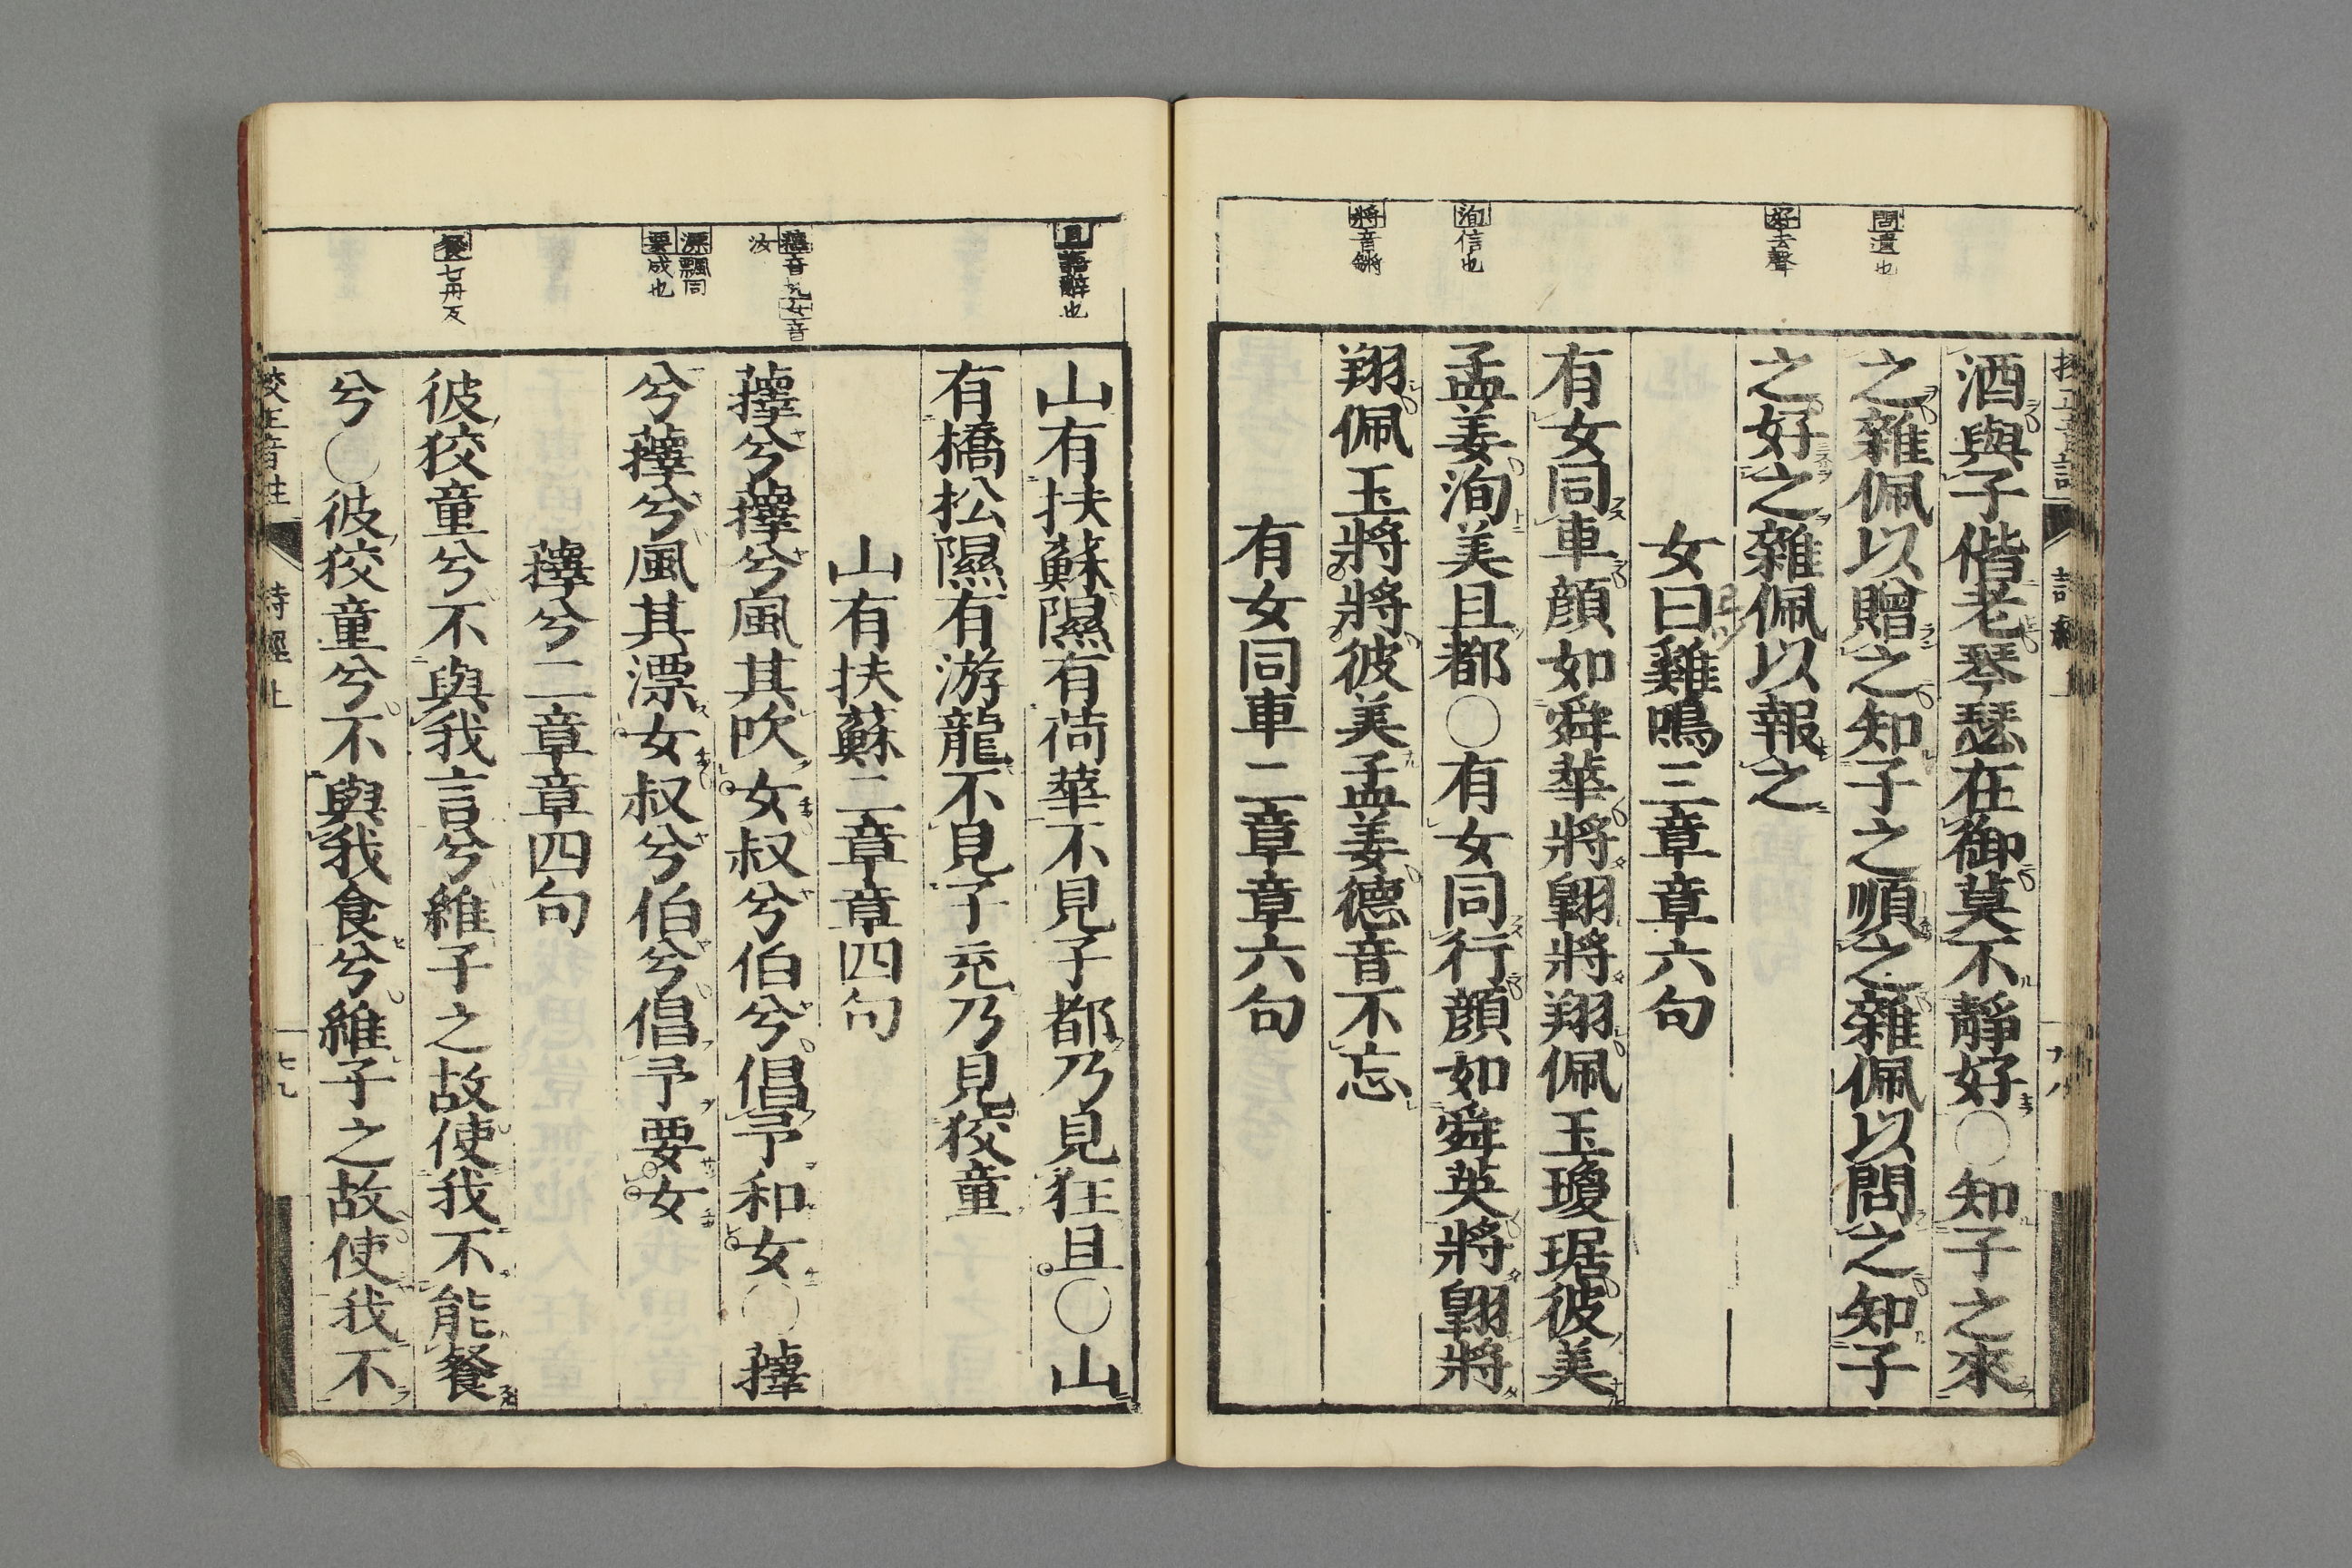 問遺也
好去聲
洵信也
將音鏘
酒與子偕老琴瑟在御莫不靜好○知子之來
之雜佩以贈之知子之順之雜佩以問之知子
之好之雜佩以報之
女曰雞鳴三章章六句
有女同車顔如舜華將翺將翔佩玉瓊琚彼美
孟姜洵美且都○有女同行顔如舜英將翺將
翔佩玉將將彼美孟姜德音不忘
有女同車二章章六句
且語辭也
蘀音 女音
汝
漂飄同
要成也
餐七丹反
山有扶蘇隰有荷華不見子都乃見狂且○山
有橋松隰有游龍不見子充乃見狡童
山有扶蘇二章章四句
蘀兮蘀兮風其吹女叔兮伯兮倡予和女○蘀
兮蘀兮風其漂女叔兮伯兮倡予要女
蘀兮二章章四句
彼狡童兮不與我言兮維子之故使我不能餐
兮○彼狡童兮不與我食兮維子之故使我不
校正音註 詩經上 七九